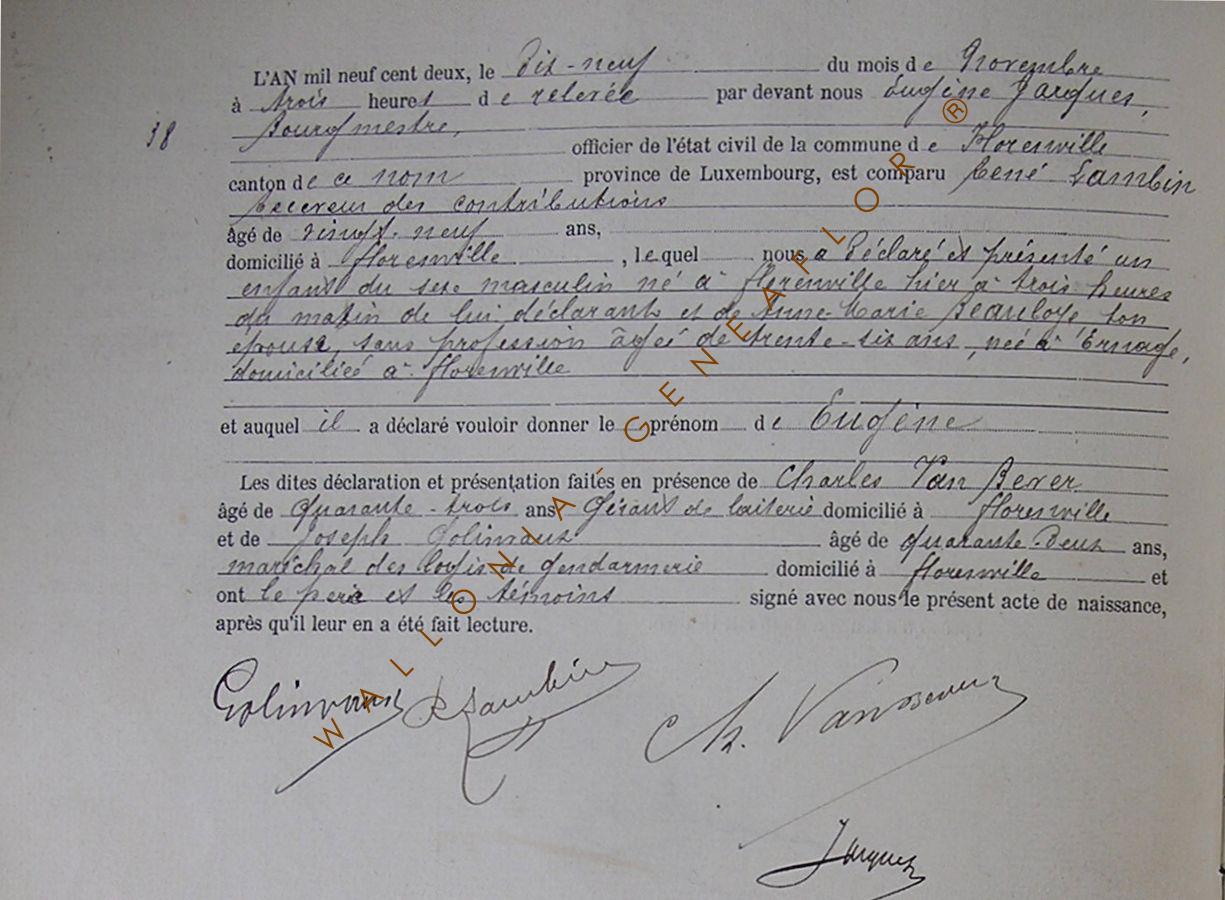 L'AN mil neuf cent deux, le Dix-neuf du mois de Novembre
à trois heures de relevée par devant nous Eugène Jacques,
38
Bourgmestre,
officier de l'état civil de la commune de Florenville
canton de ce nom province de Luxembourg, est comparu René Lambin
Receveur des contributions
âgé de vingt-neuf ans,
domicilié à Florenville, lequel nous a déclaré et présenté un
enfant du sexe masculin né à Florenville hier à trois heures
du matin de lui déclarant et de Anne-Marie Beauloye son
épouse, sans profession âgée de trente-six ans, née à Ernage,
domiciliée à Florenville
et auquel il a déclaré vouloir donner le prénom de Eugène
Les dites déclaration et présentation faites en présence de Charles Van Bever
âgé de quarante-trois ans Gérant de laiterie domicilié à Florenville
et de Joseph Golinvaux âgé de quarante-deux ans,
maréchal des logis de gendarmerie domicilié à Florenville et
ont le père et les témoins signé avec nous le présent acte de naissance,
après qu'il leur en a été fait lecture.
Golinvaux R Lambin Ch. Van Bever
Jacques
WALLONIA GENEAFLOR ®